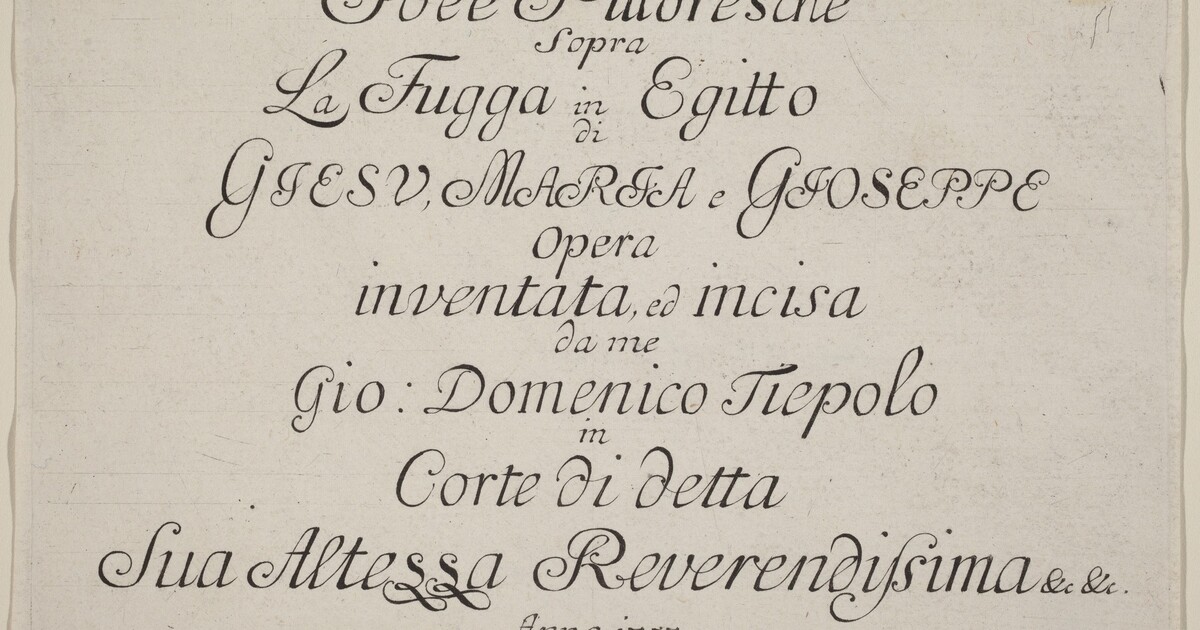 Idee Pittoresche
Sopra
La Fugga in Egitto
di
GIESV, MARIA e GIOSEPPE
Opera
inventata, ed incisa
da me
Gio: Domenico Tiepolo
in
Corte di detta
Sua Altessa Reverendissima &c &c.
Anno 1753